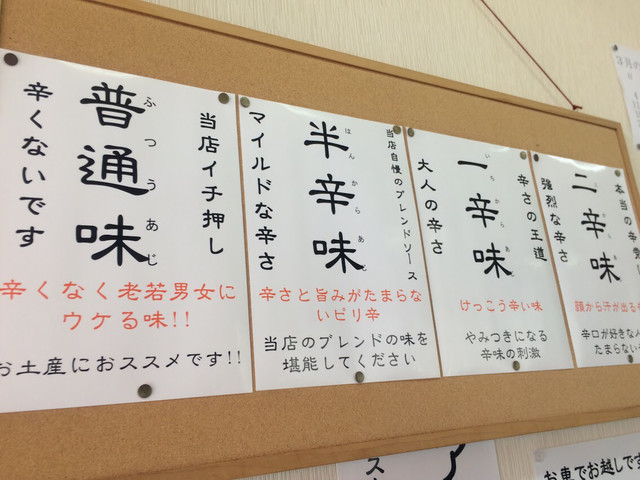 当店イチ押し
普通味
ふつうあじ
辛くないです
辛くなく老若男女に
ウケる味!!
お土産におススメです!!
当店自慢のブレンドソース
半辛味
はんからあじ
マイルドな辛さ
辛さと旨みがたまらな
いピリ辛
当店のブレンドの味を
堪能してください
辛さの王道
一辛味
いちからあじ
大人の辛さ
けっこう辛い味
やみつきになる
辛味の刺激
本当の辛党
二辛味
にからあじ
強烈な辛さ
顔から汗が出る
辛口が好きな人
たまらない
3月の
スト
お車でお越しです